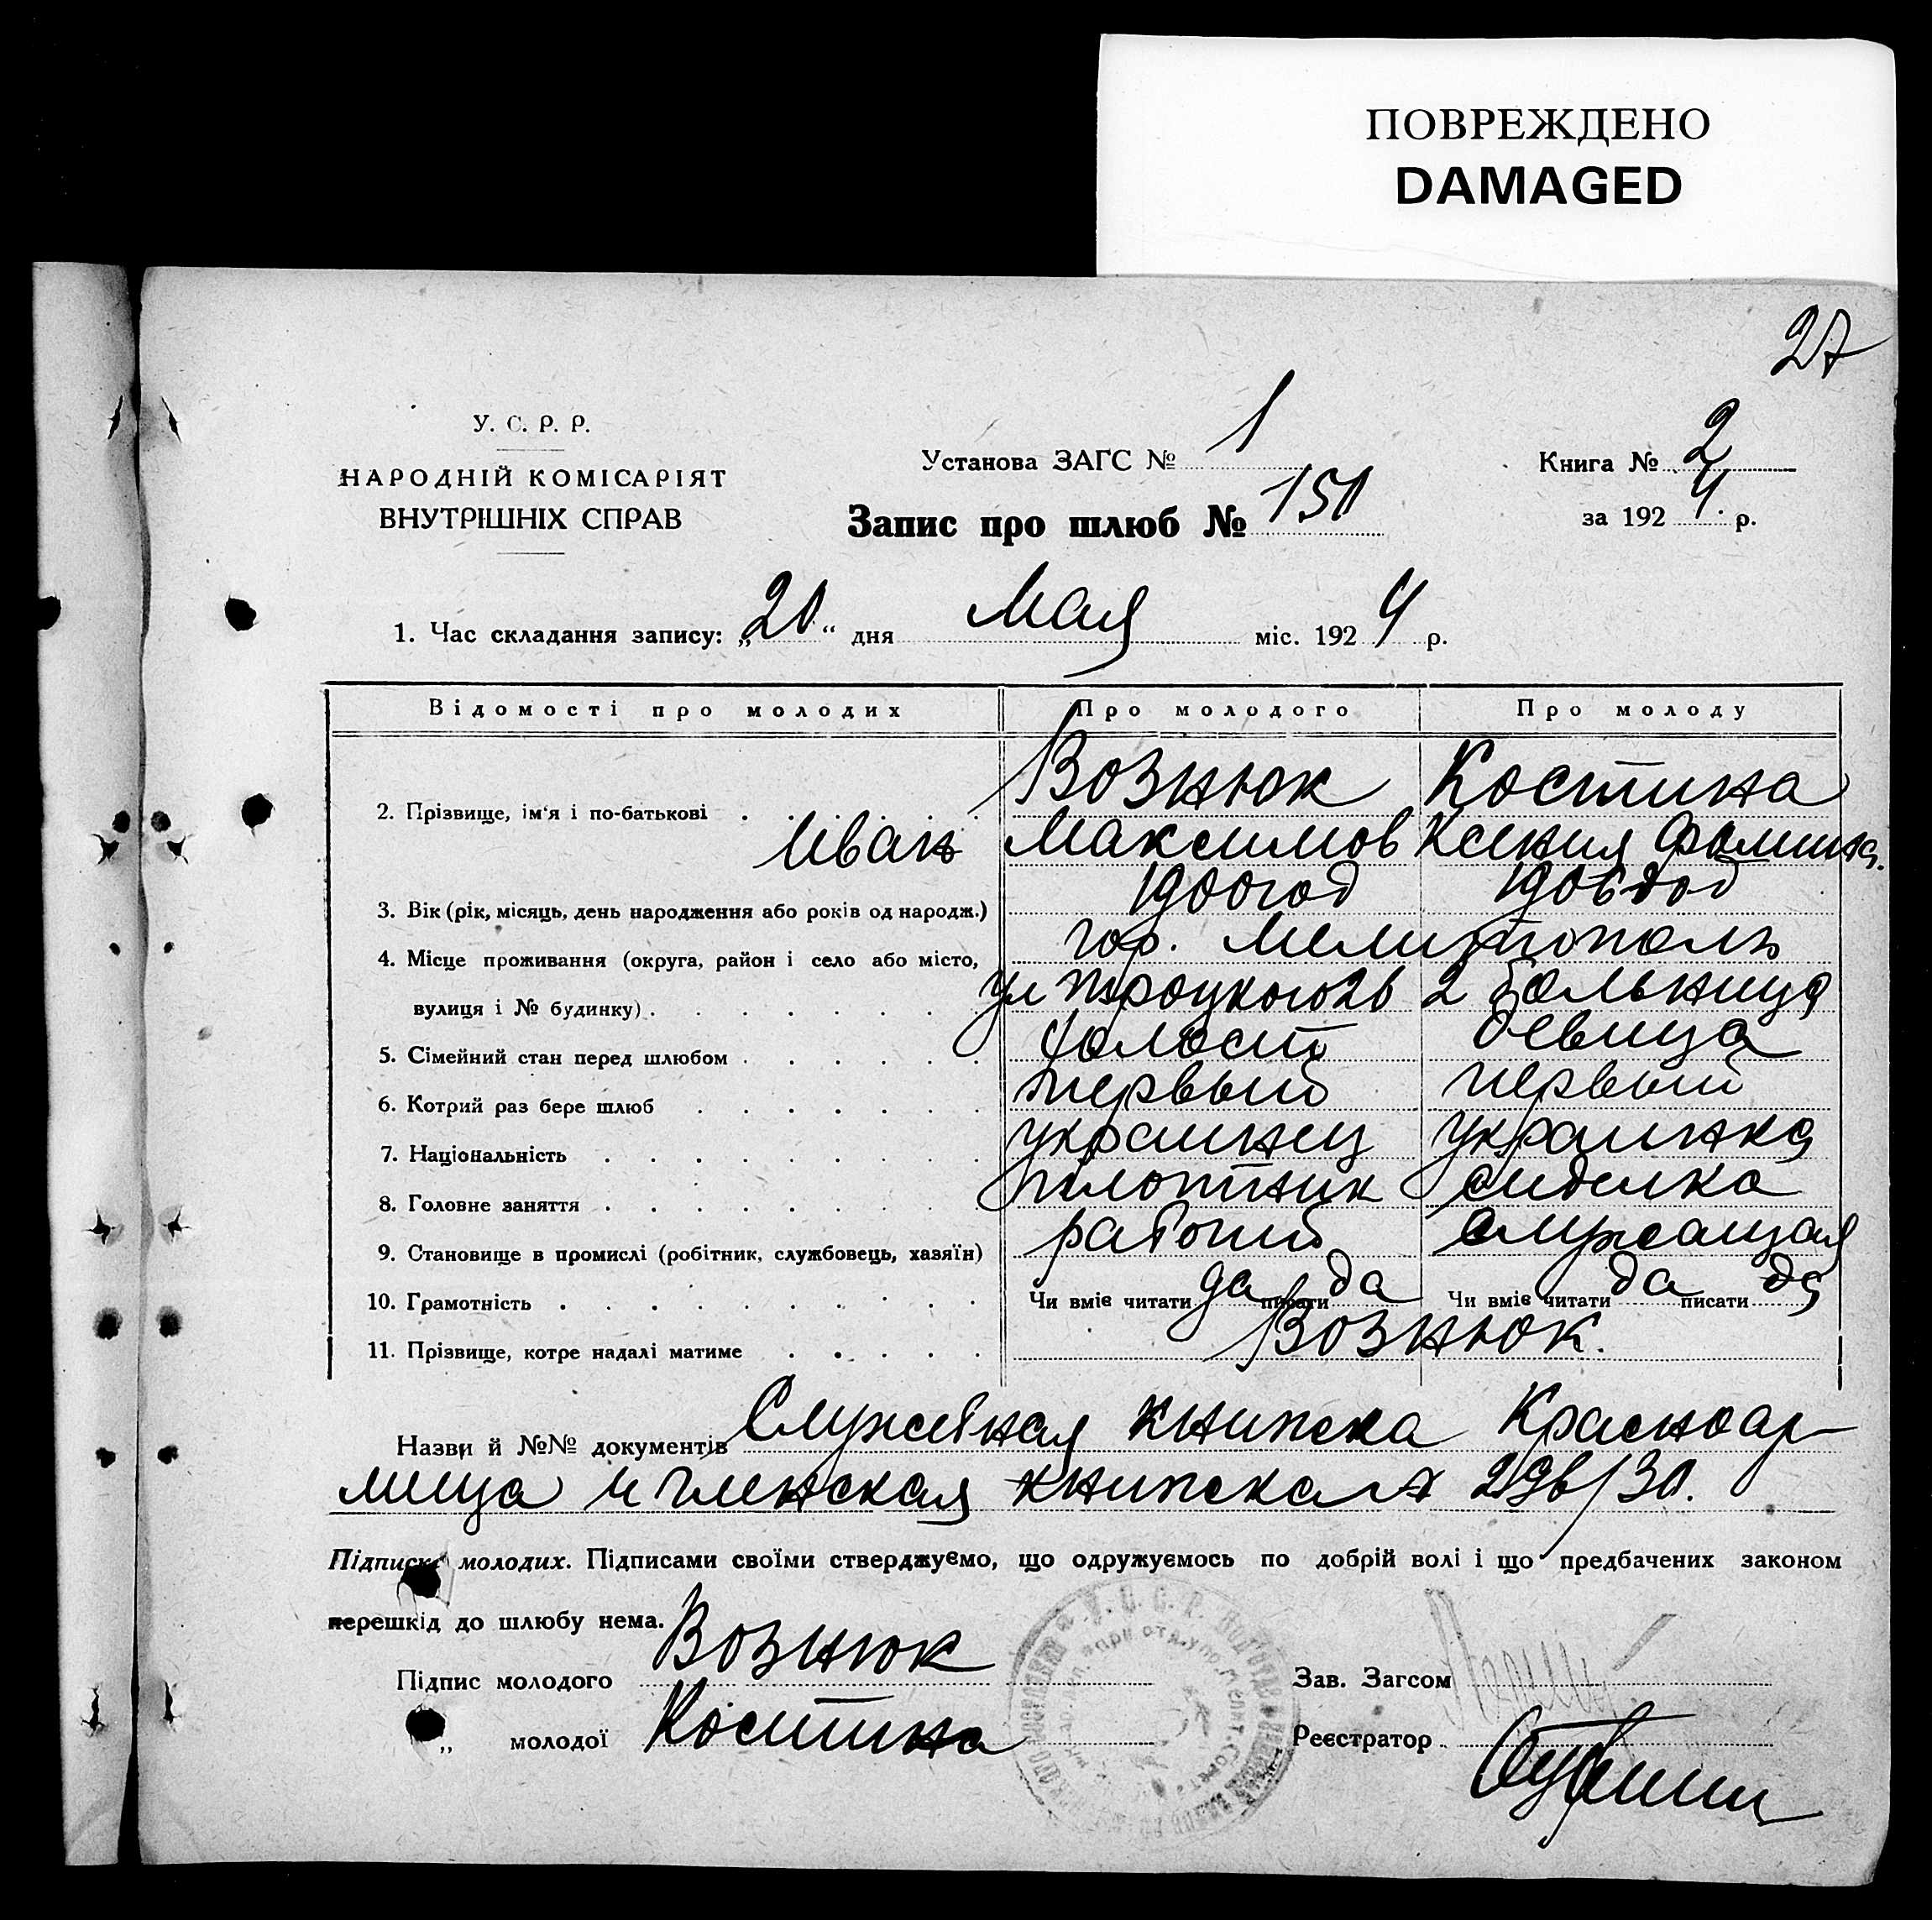 ПОВРЕЖДЕНО
DAMAGED
27
У. С. Р. Р.
НАРОДНІЙ КОМІСАРІЯТ
ВНУТРІШНІХ СПРАВ
Установа ЗАГС № 1
Книга № 2
Запис про шлюб № 150
за 1924. р.
1. Час складання запису: „20“ дня Мая міс. 1924 р.
Відомості про молодих Про молодого Про молоду
Вознюк Костина
2. Прізвище, ім'я і по-батькові
Иван Максимов Ксения Фомина.
3. Вік (рік, місяць, день народження або років од народж.) 1900 год 1906 год
4. Місце проживання (округа, район і село або місто, гор. Мелитополь
вулиця і № будинку) ул Троцкого 26 2 больница
5. Сімейний стан перед шлюбом холост девица
6. Котрий раз бере шлюб первый первый
7. Національність украинец украинка
8. Головне заняття плотник сиделка
9. Становище в промислі (робітник, службовець, хазяїн) рабочий служащая
10. Грамотність Чи вміє читати да писати да Чи вміє читати да писати да
11. Прізвище, котре надалі матиме Вознюк.
Назви й №№ документів Служебная книжка Красноар-
мица и членская книжка № 296/30.
Підписка молодих. Підписами своїми стверджуємо, що одружуємось по добрій волі і що предбачених законом
перешкід до шлюбу нема.
Підпис молодого Вознюк
Зав. Загсом
„ молодої Костина
Реєстратор